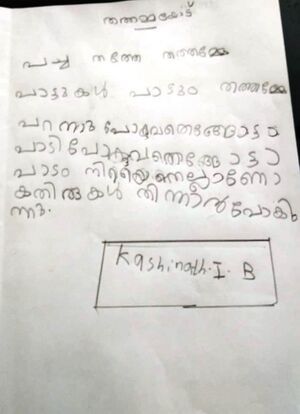 തത്തമ്മയോട്
പച്ച തത്തേ തത്തമ്മേ
പാട്ടുകൾ പാടും തത്തമ്മേ
പറന്നു പോകുവതെങ്ങോട്ടാ
പാടി പോകുവതെങ്ങോട്ടാ
പാടം നിറയെ നെല്ലാണോ
കതിരുകൾ തിന്നാൻ പോകു
ന്നു.
Kashinath.I.B